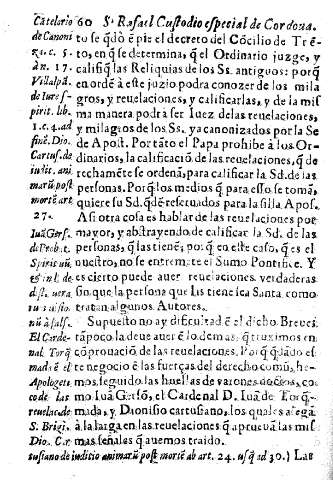 Catelario 60 S. Rafael Custodio especial de Cordoua.
de Canoni to se qdò ē pie el decreto del Cōcilio de Trē
ẓa. c. 5. to, en q̄ se determina, q̄ el Ordinario juzge, y
àn. 17. califiq̄ las Reliquias de los Ss. antiguos: porq̄
Villalpā. en ordē à este juzio podra conozer de los mila
de Iure sp- gros, y reuelaciones, y calificarlas, y de la mis
pirit. lib. ma manera podrà ser Iuez de las reuelaciones,
1. c. 4. ad y milagros de los Ss. ya canonizados por la Se
finē. Dio. de Apost. Portāto el Papa prohibe à los Or-
Cartus. de dinarios, la calificaciō de las reuelaciones, q̄ de
iudit. ani. rechamēte se ordenā, para calificar la Sd. de las
marū post personas. Porq̄ los medios q̄ para esso se tomā,
mortē art quiere su Sd. q̄dē resetuados para la silla Apos.
27. Asi otra cosa es hablar de las reuelaciones por
Iuā Gers. mayor, y abstrayendo de calificar la Sd. de las
de Probat. personas, q̄ las tienē; por q̄ en este caso, q̄ es el
Spirituū nuestro, no se entremete el Sumo Pontifice. Y
es cierto puede auer reuelaciones verdaderas
dist. uera. sin que la persona que las tiene sea Santa como
tratan algunos Autores.
nū à fals. Supuesto no ay dificultad ē el dicho Breue:
El Carde- tāpoco la deue auer ē lo demas; q̄ truximos en
nal Torq̄ cōprouaciō de las reuelaciones. Porq̄ quādo es
mada ē el te negocio ē las fuerças del derecho comū, he-
Apologet. mos seguido las huellas de varones doctos, co
code las mo Iuā Gersō, el Cardenal D. Iuā de Torq̄-
reuela. de mada, y Dionisio cartusano, los quales alegā
S. Brigi. à la larga en las reuelaciones q̄ aprueuā las mis
Dio. Car mas señales q̄ auemos traido.
tusiano de iuditio animarū post mortē ab art. 24. usq̄ ad 30.) Las